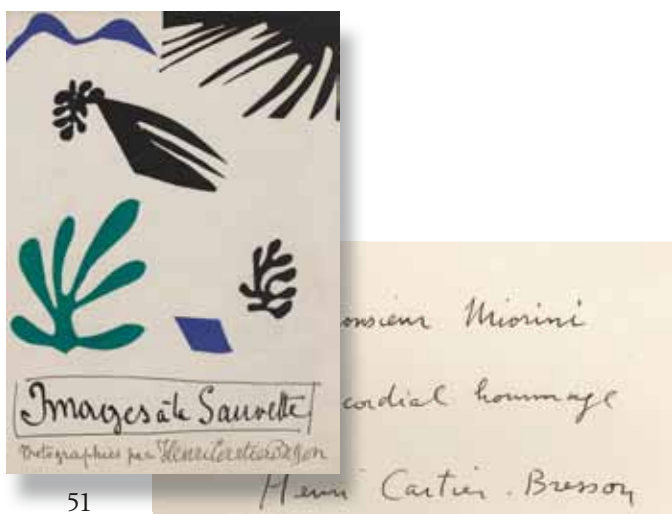 Images à la Sauvette
Photographies par Henri Cartier-Bresson
onsieur Miorini
cordial hommage
Henri Cartier-Bresson
51